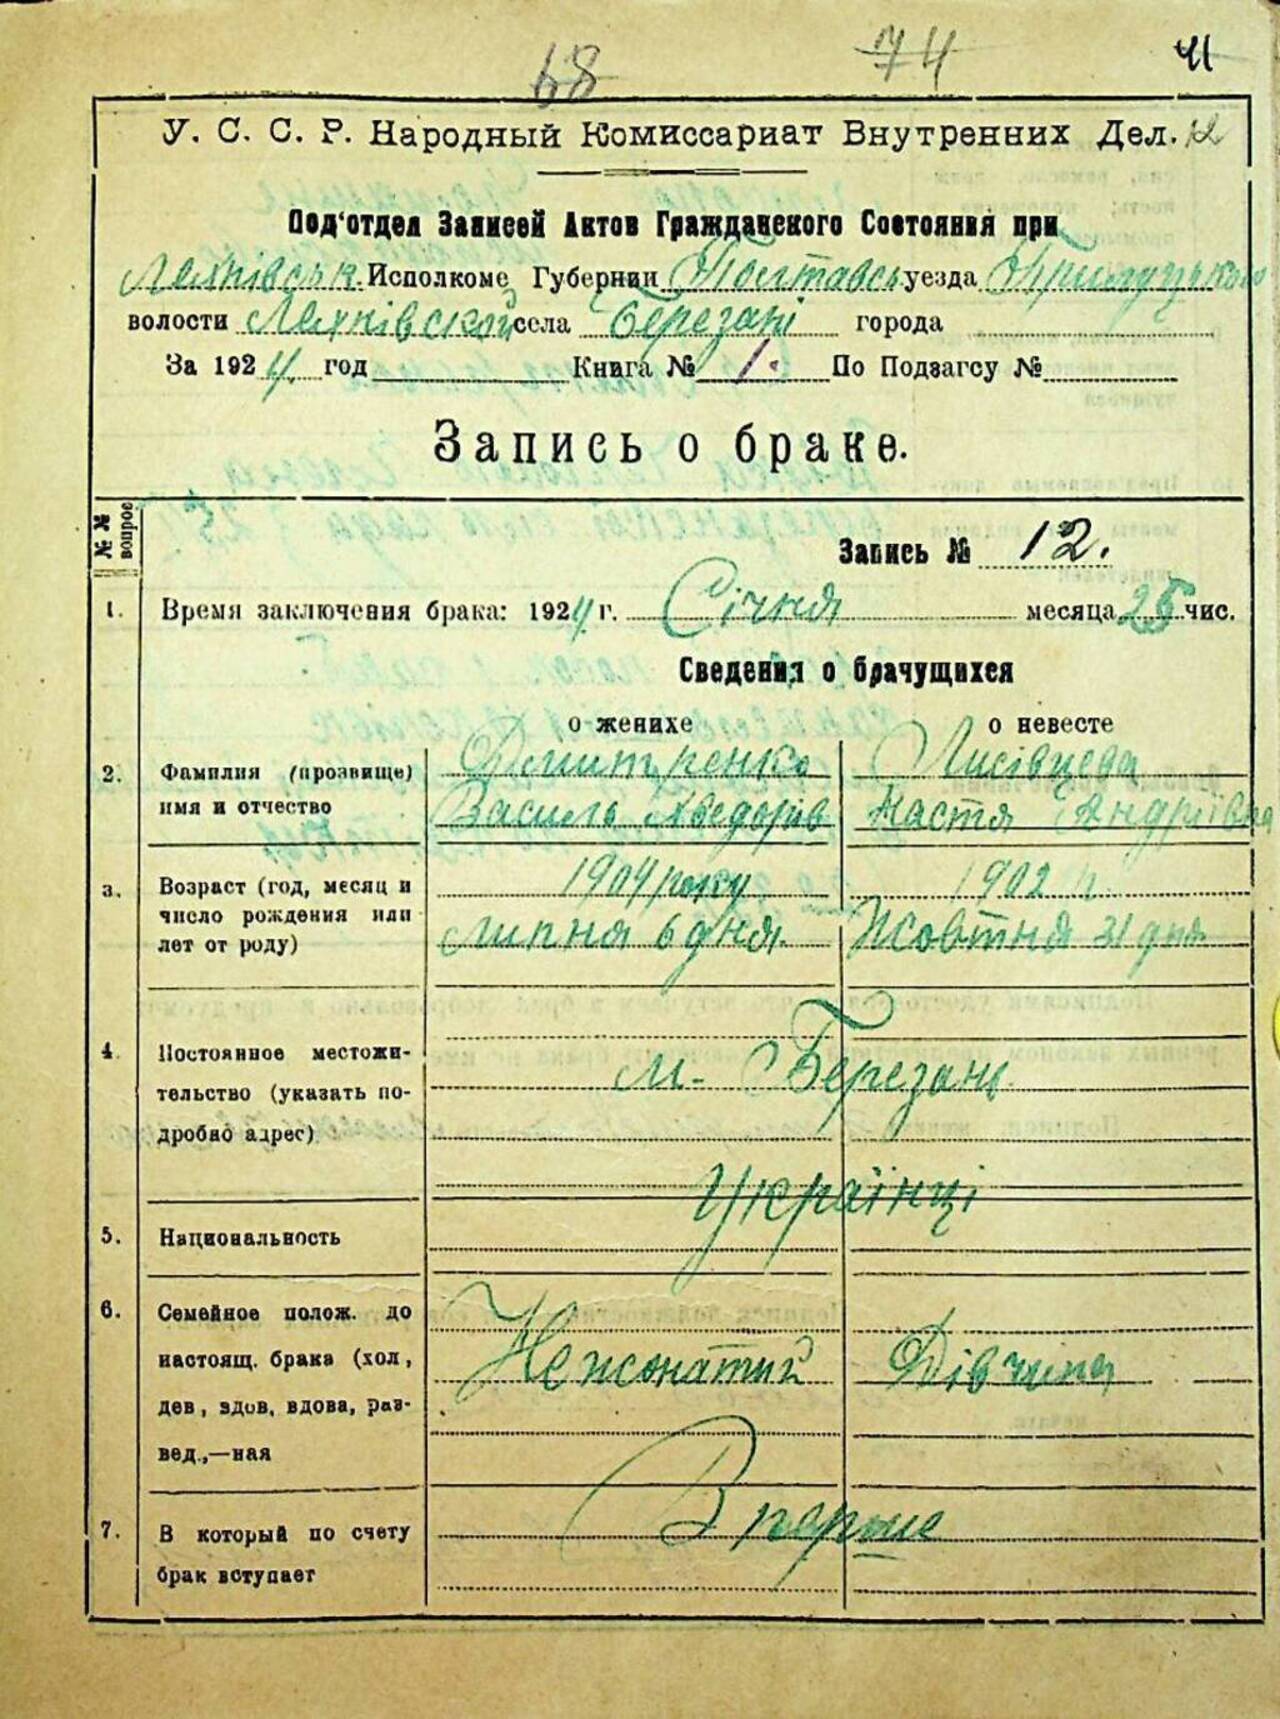 68 74 41
У. С. С. Р. Народный Комиссариат Внутренних Дел. 12
Под'отдел Записей Актов Гражданского Состояния при
Лехнівськ. Исполкоме Губернии Полтавсь уезда Прилуцького
волости Лехнівской села Березані города
За 1924 год Книга № 1. По Подзагсу №
Запись о браке.
№№ вопрос
Запись № 12.
1. Время заключения брака: 1924 г. Січня месяца 25 чис.
Сведения о брачущихся
о женихе о невесте
2. Фамилия (прозвище) Дмитренко Лисівцева
имя и отчество Василь Хведорів Настя Андріївна
3. Возраст (год, месяц и 1904 року 1902 р.
число рождения или
лет от роду) липня 6 дня. Жовтня 31 дня
4. Постоянное местожи-
тельство (указать по- м. Березань
дробно адрес)
Українці
5. Национальность
6. Семейное полож. до
настоящ. брака (хол, Нежонатий Дівчина
дев, вдов, вдова, раз-
вед.,—ная
7. В который по счету Вперше
брак вступает